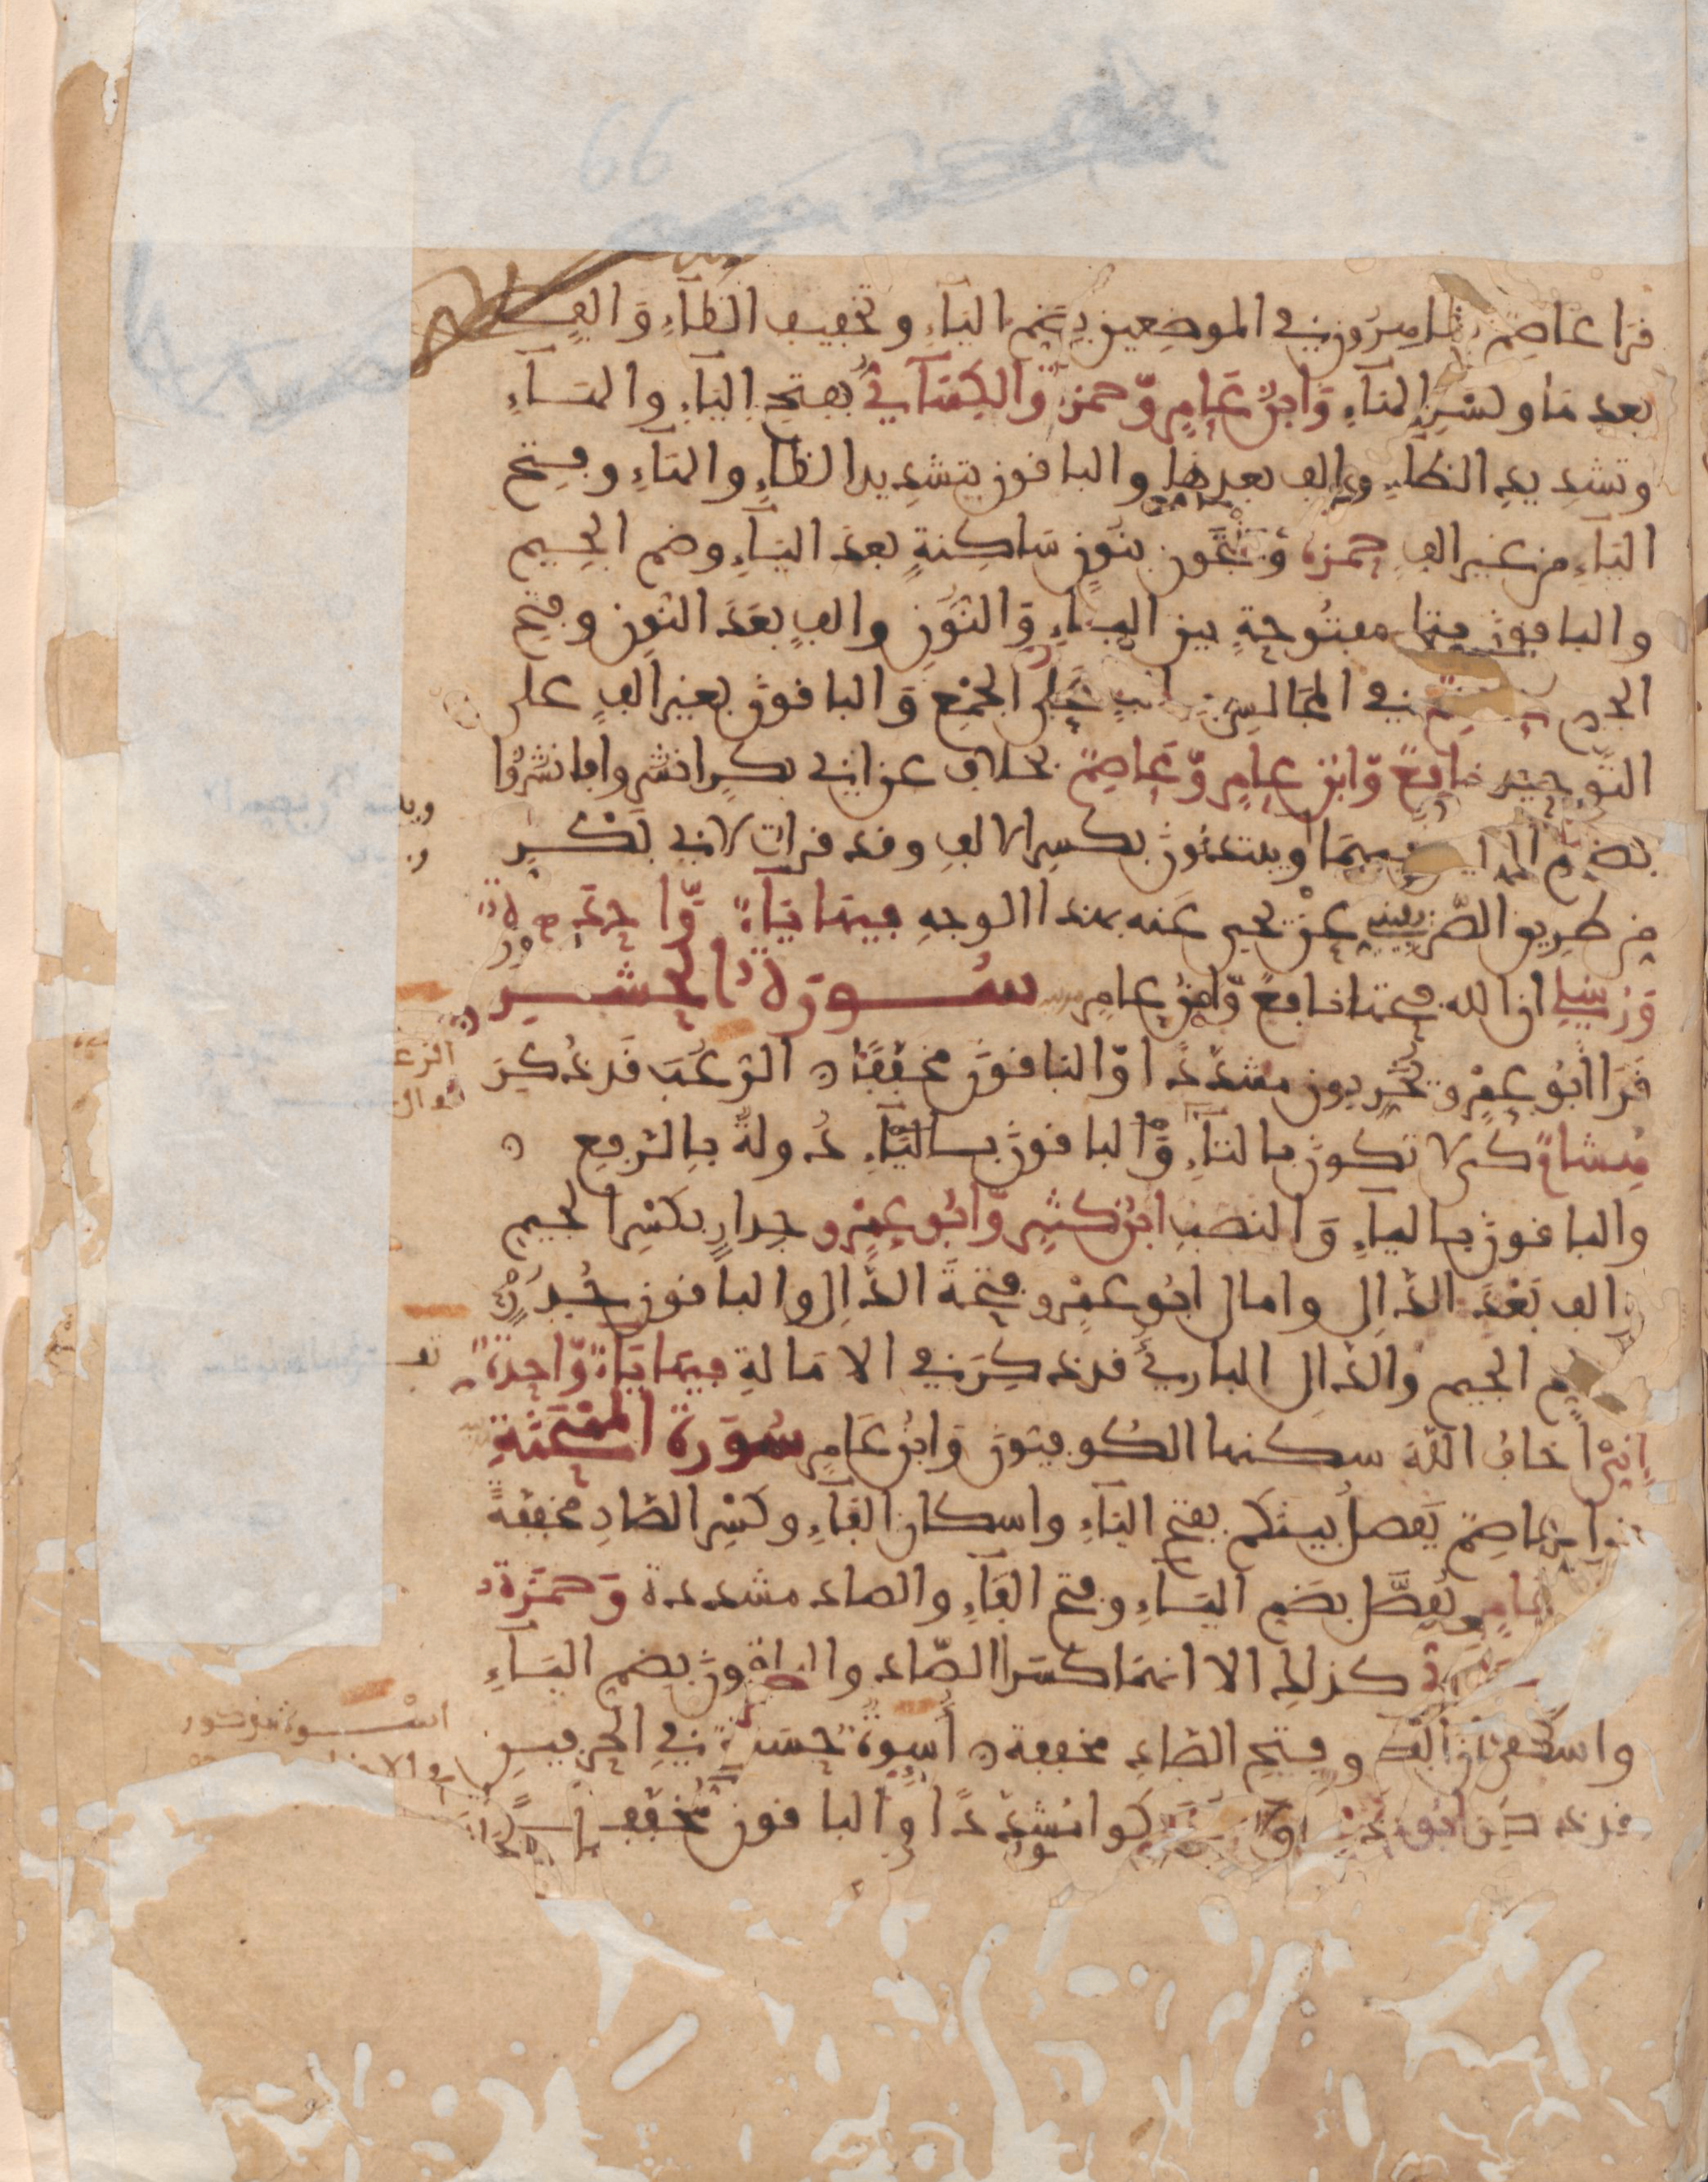 قرا عاصم يظاهرون في الموضعين بضم الياء وتخفيف الظاء والف
بعدها وكسر الهاء وابن عامر وحمزة والكسائي بفتح الياء والهاء
وتشديد الظاء والف بعدها والباقون بتشديد الظاء والهاء وفتح
الياء من غير الف حمزة وينتجون بنون ساكنة بعد الياء وضم الجيم
والباقون بتاء مفتوحة بين الياء والنون والف بعد النون وفتح
الجيم في المجالس بالف على الجمع والباقون بغير الف على
التوحيد نافع وابن عامر وعاصم بخلاف عن ابي بكر انشزوا فانشزوا
بضم فيهما ويبتدئون بكسر الالف وقد قرات لابي بكر
من طريق الصريفيني عن يحيى عنه بهذا الوجه فيها ياء واحدة
ورسلي ان الله فتحها نافع وابن عامر سورة الحشر
قرا ابو عمرو يخربون مشددا والباقون مخففا الرعب قد ذكر
هشام كي لا تكون بالتاء والباقون بالياء دولة بالرفع
والباقون بالياء والنصب ابن كثير وابو عمرو جدار بكسر الجيم
والف بعد الدال وامال ابو عمرو فتحة الدال والباقون جدر
بضم الجيم والدال البارئ قد ذكر في الامالة فيها ياء واحدة
اني اخاف الله سكنها الكوفيون وابن عامر سورة الممتحنة
قرا عاصم يفصل بينكم بفتح الياء واسكان الفاء وكسر الصاد مخففة
عامر يفصل بضم الياء وفتح الفاء والصاد مشددة وحمزة
كذلك الا انهما كسرا الصاد والباقون بضم الياء
واسكان الفاء وفتح الصاد مخففة اسوة حسنة في الحرفين
قد ذكر ابو عمرو ولا تمسكوا مشددا والباقون مخففا